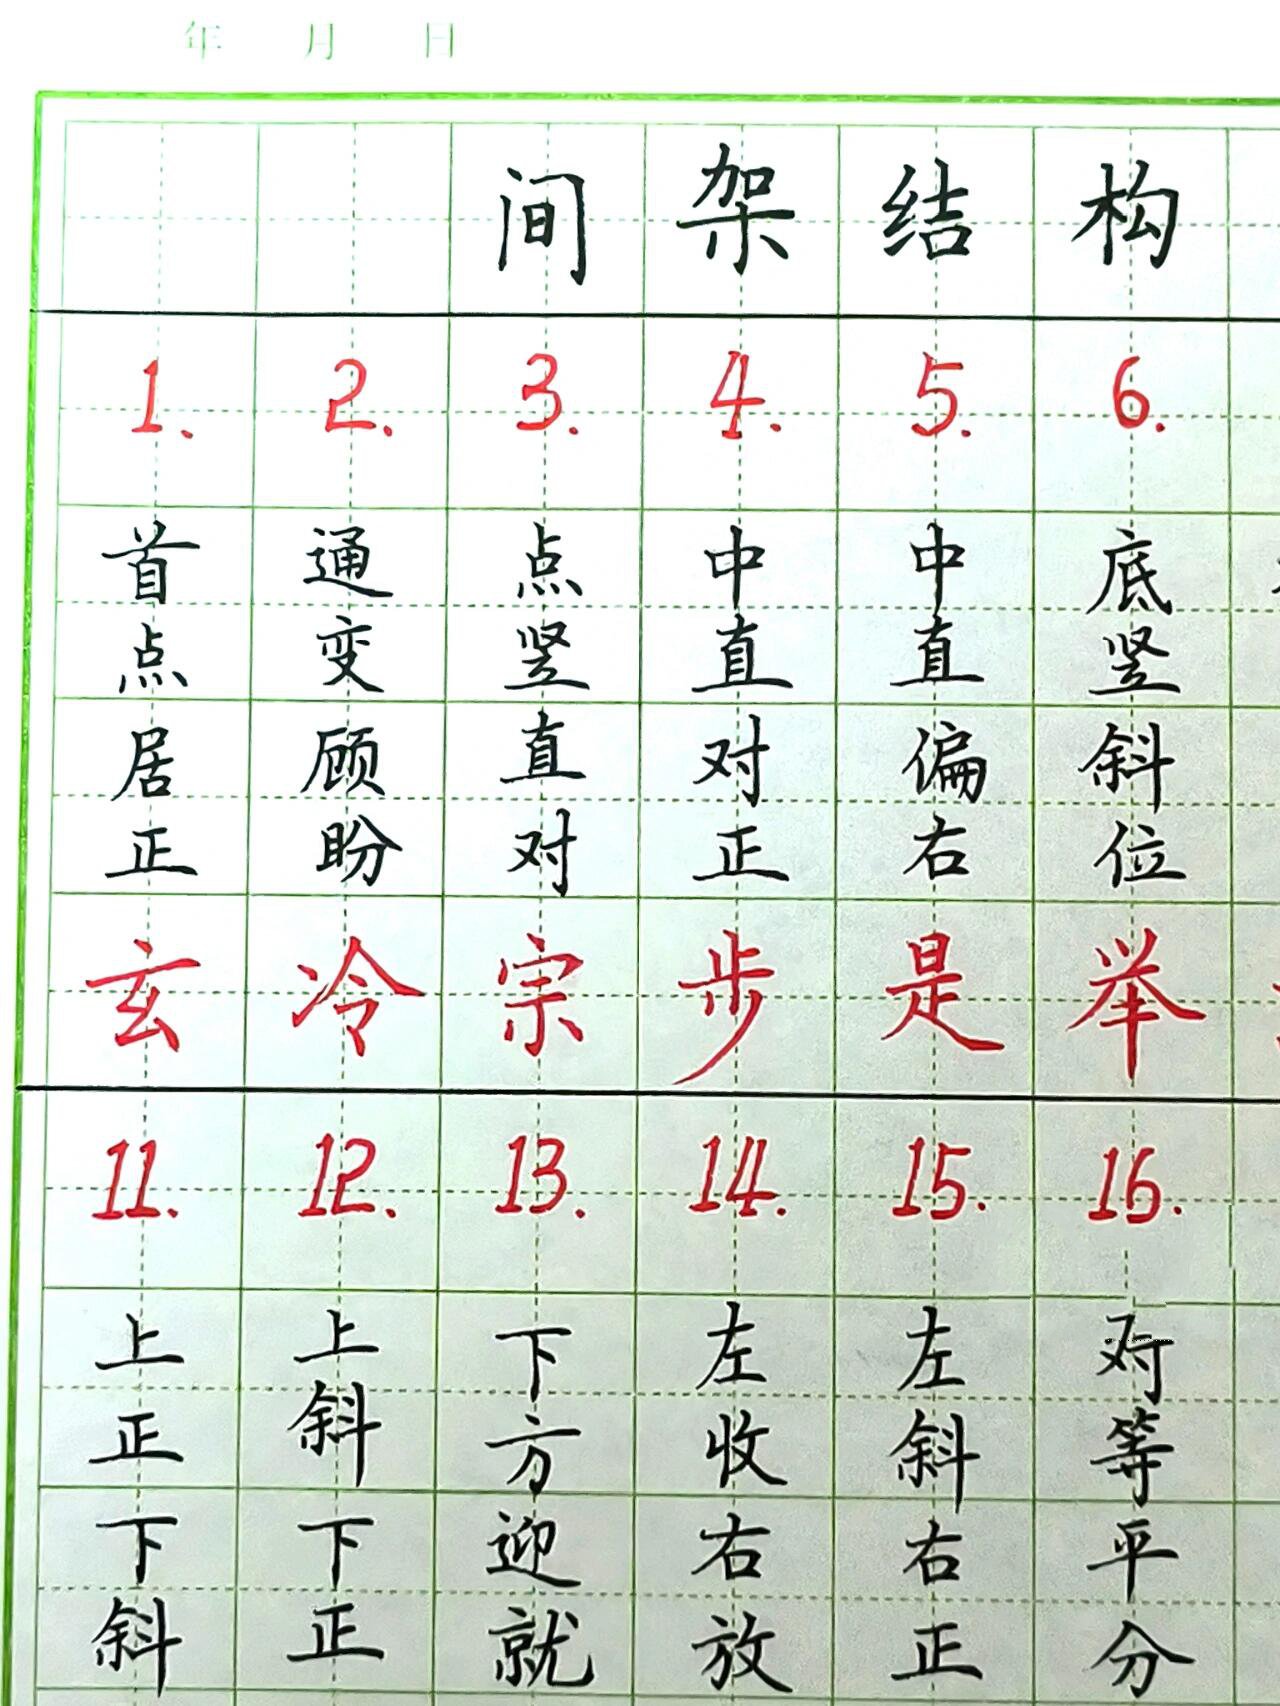 年 月 日
间架结构
1. 2. 3. 4. 5. 6.
首点居正
通变顾盼
点竖直对
中直对正
中直偏右
底竖斜位
玄 冷 宗 步 是 举
11. 12. 13. 14. 15. 16.
上正下斜
上斜下正
下方迎就
左收右放
左斜右正
对等平分